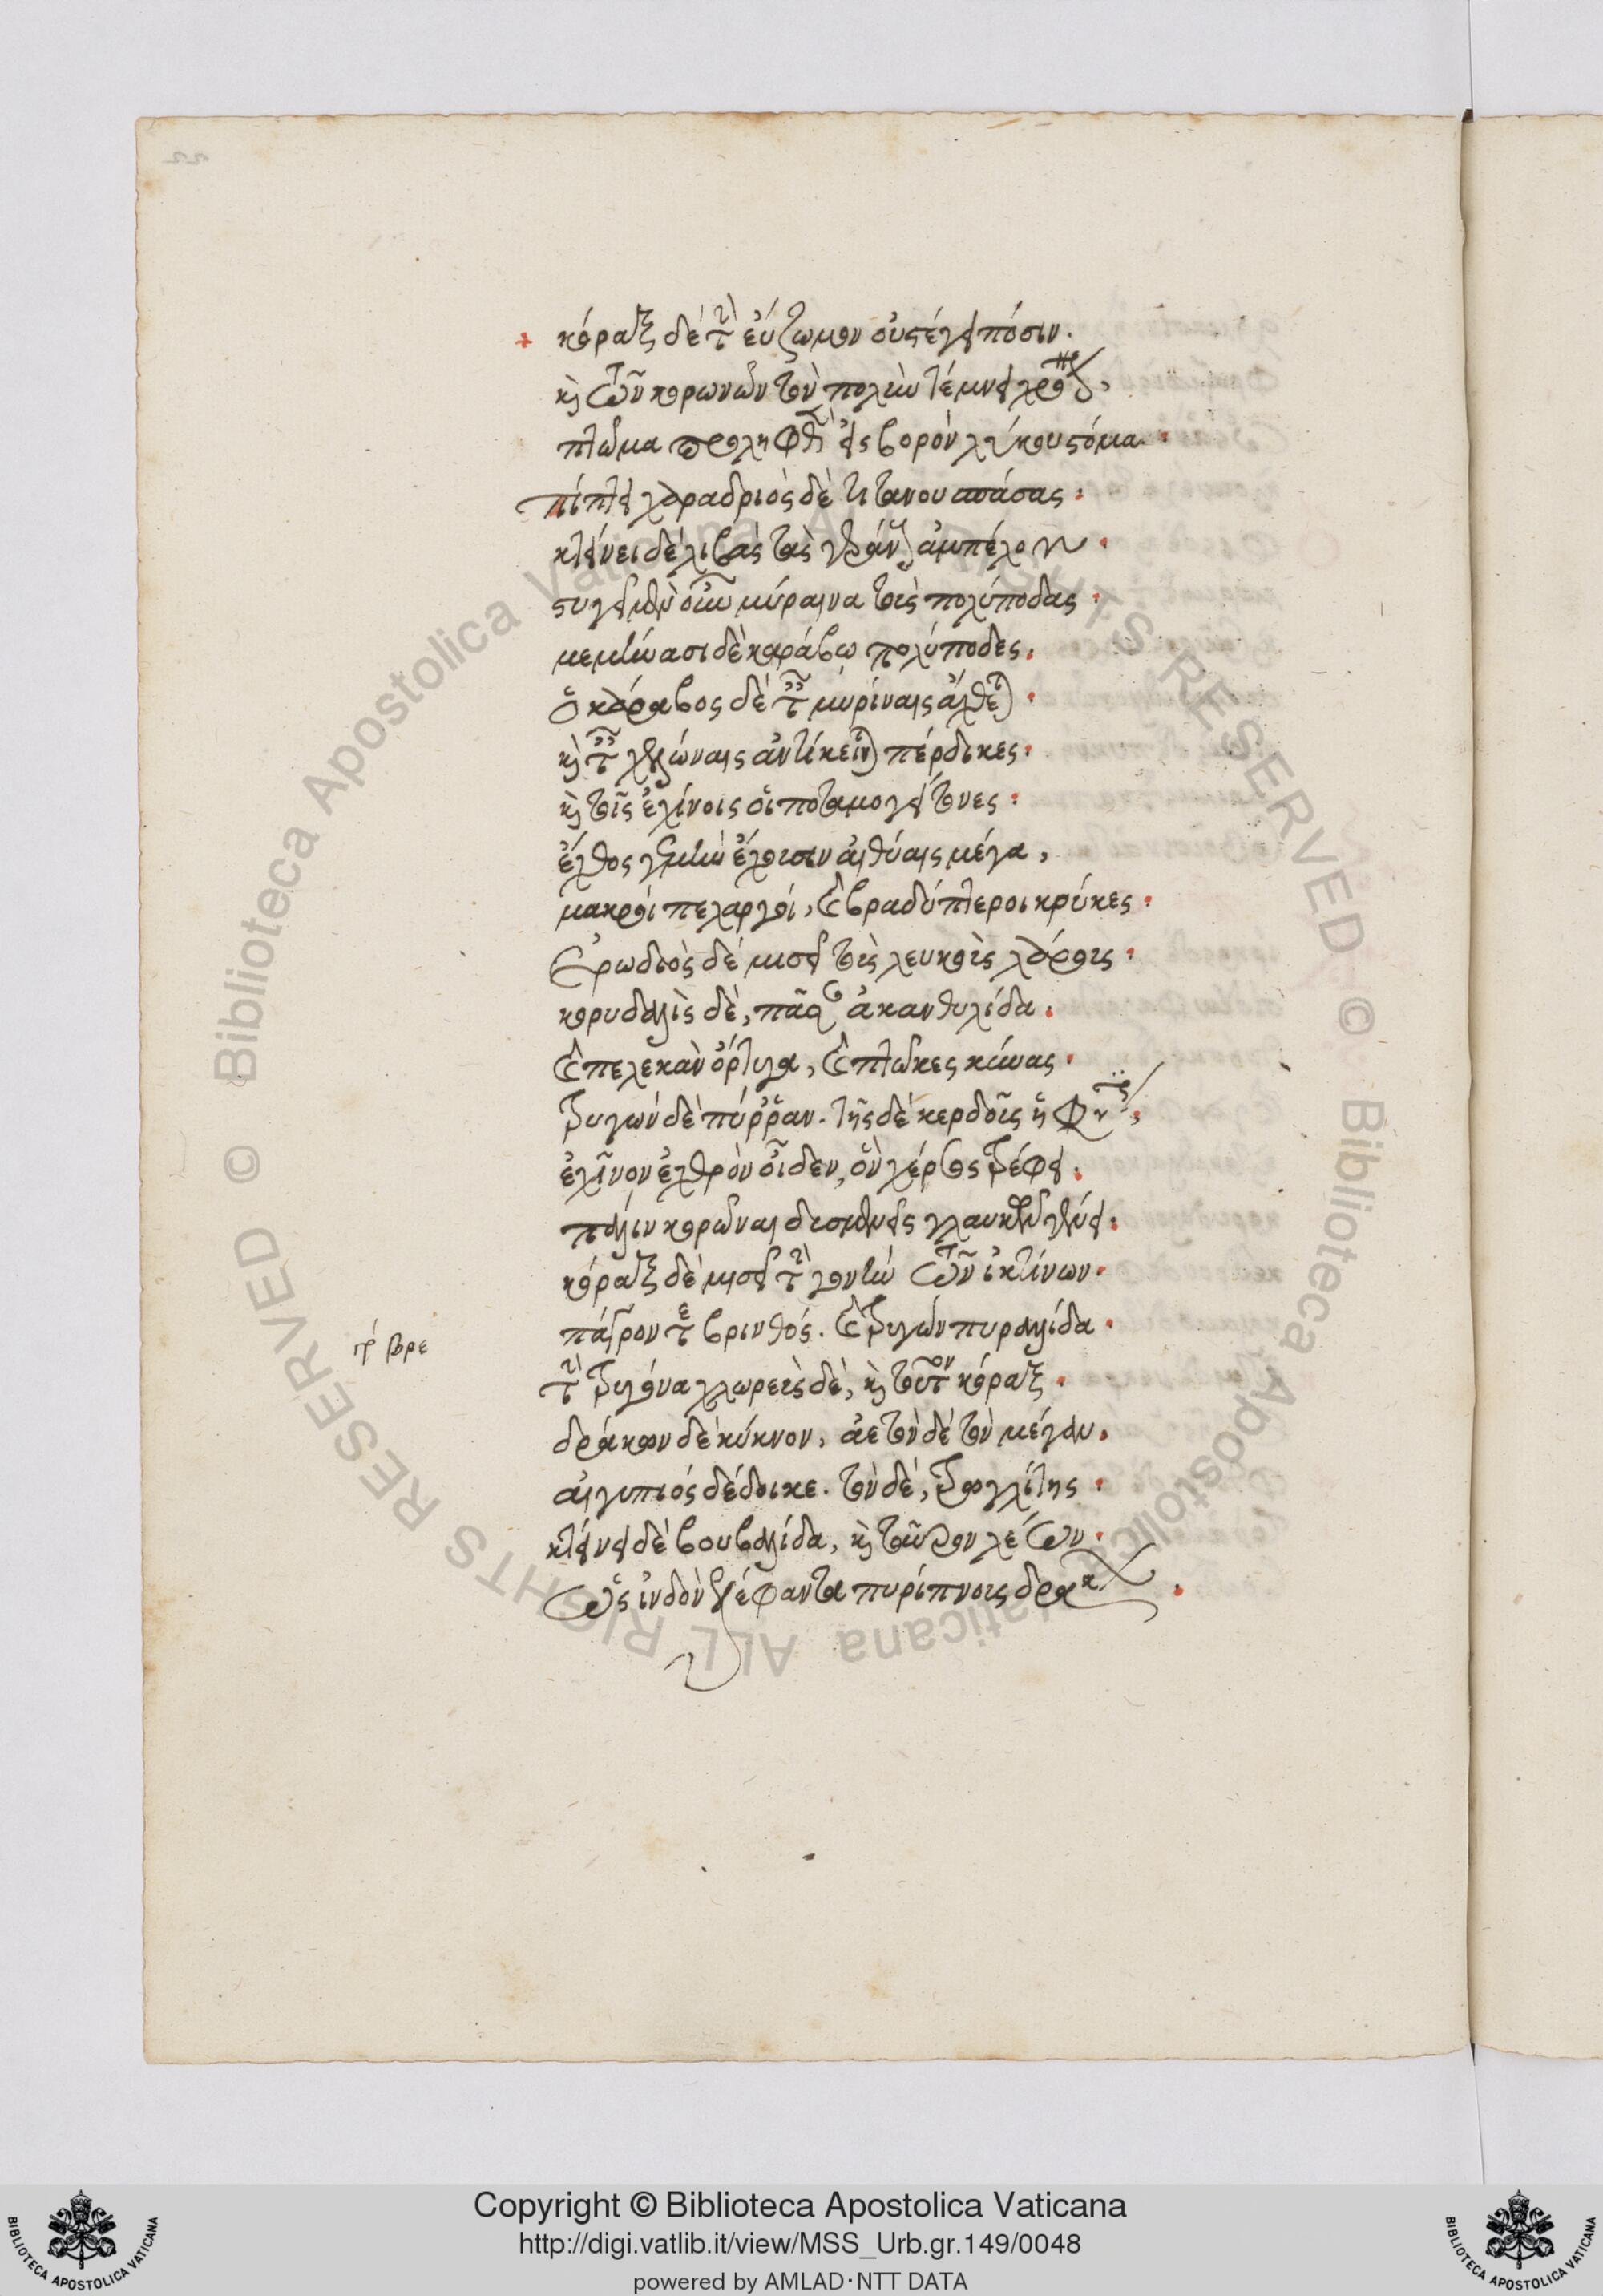 κόραξ δὲ τὴν εὔζωμον οὐ στέγει πόσιν.
καὶ τῶν κορωνῶν τὸν πολὺν τέμνει χρόνον,
πτῶμα προληφθὲν εἰς βορὸν λύκου στόμα.
πίπτει χαραδριὸς δὲ τιτάνου σπάσας:
κτείνει δὲ λιβὰς τὰς ἀμπέλου
στυγεῖ μὲν οὖν μύραινα τοὺς πολύποδας
μεμήνασι δὲ καράβῳ πολύποδες.
ὁ κάραβος δὲ ταῖς μυρίναις ἄχθεται.
καὶ ταῖς χελώναις ἀντίκεινται πέρδικες.
καὶ τοῖς ἐχίνοις οἱ ποταμογείτονες:
ἔχθος γε μὴν ἔχουσιν αἰθύαις μέγα,
μακροὶ πελαργοί, καὶ βραδύπτεροι κρύκες.
Ἐρωδιὸς δὲ μισεῖ τοὺς λευκοὺς λάρους.
κορυδαλὶς δὲ, πᾶσαν ἀκανθυλίδα.
καὶ πελεκὰν ὄρτυγα, καὶ πτῶκες κύνας.
τρυγὼν δὲ πύρῥαν. τῆς δὲ κερδοῦς ἡ φύσις,
ἐχῖνον ἐχθρὸν οἶδεν, ὃν χέρσος τρέφει.
πάλιν κορῶναι δυσμενεῖς
κόραξ δὲ μισεῖ τὴν γονὴν τῶν ἰκτίνων.
πάτρον τε βρινθός. καὶ τρυγὼν πυραλίδα.
τὴν τρυγόνα χλωρεὺς δὲ, καὶ τοῦτον κόραξ.
δράκων δὲ κύκνον, ἀετὸν δὲ τὸν μέγαν.
αἰγυπιὸς δέδοικε. τὸν δὲ, τρωγλίτης.
κτείνει δὲ βουβαλίδα, καὶ ταῦρον λέων.
ὡς ἰνδὸν ἐλέφαντα πυρίπνους δράκων.
Copyright © Biblioteca Apostolica Vaticana
http://digi.vatlib.it/view/MSS_Urb.gr.149/0048
powered by AMLAD·NTT DATA